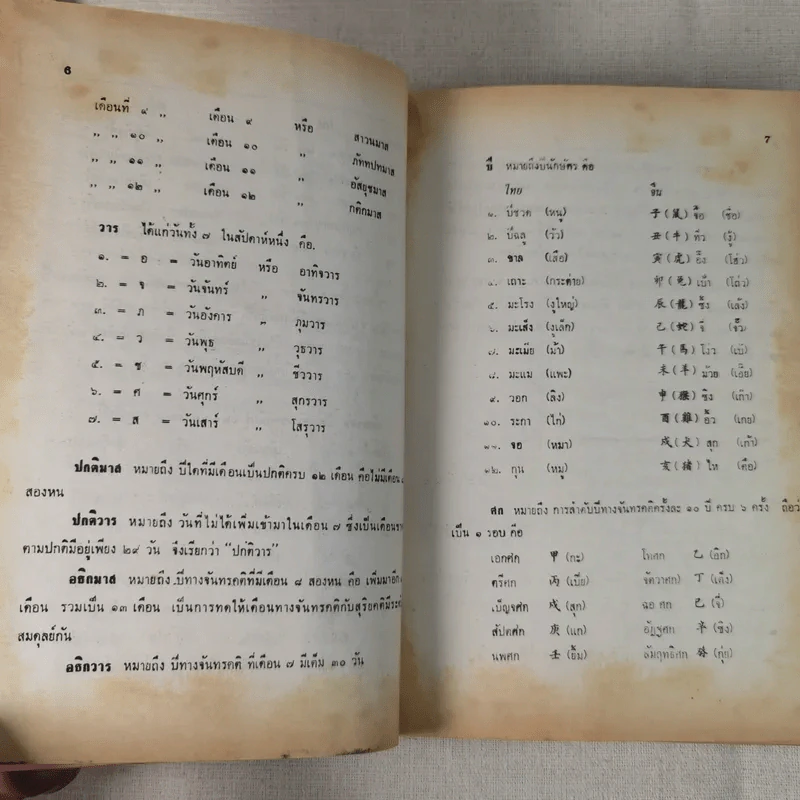 6
เดือนที่ ๙ ,, เดือน ๙ หรือ สาวนมาส
,, ,, ๑๐ ,, เดือน ๑๐ ,, ภัททปทมาส
,, ,, ๑๑ ,, เดือน ๑๑ ,, อัสยุชมาส
,, ,, ๑๒ ,, เดือน ๑๒ ,, กติกมาส
วาร ได้แก่วันทั้ง ๗ ในสัปดาห์หนึ่ง คือ.
๑. = อ = วันอาทิตย์ หรือ อาทิจวาร
๒. = จ = วันจันทร์ ,, จันทรวาร
๓. = ภ = วันอังคาร ,, ภุมวาร
๔. = ว = วันพุธ ,, วุธวาร
๕. = ช = วันพฤหัสบดี ,, ชีววาร
๖. = ศ = วันศุกร์ ,, สุกรวาร
๗. = ส = วันเสาร์ ,, โสรวาร
ปกติมาส หมายถึง ปีใดที่มีเดือนเป็นปกติครบ ๑๒ เดือน คือไม่มีเดือน
สองหน
ปกติวาร หมายถึง วันที่ไม่ได้เพิ่มเข้ามาในเดือน ๗ ซึ่งเป็นเดือน
ตามปกติมีอยู่เพียง ๒๙ วัน จึงเรียกว่า “ปกติวาร”
อธิกมาส หมายถึง ปีทางจันทรคติที่มีเดือน ๘ สองหน คือ เพิ่มมาอีก
เดือน รวมเป็น ๑๓ เดือน เป็นการทดให้เดือนทางจันทรคติกับสุริยคติมี
สมดุลย์กัน
อธิกวาร หมายถึง ปีทางจันทรคติ ที่เดือน ๗ มีเต็ม ๓๐ วัน
7
ปี หมายถึงปีนักษัตร คือ
ไทย จีน
๑. ปีชวด (หนู) 子 (鼠) จื้อ (ชื่อ)
๒. ปีฉลู (วัว) 丑 (牛) ทิ่ว (งู้)
๓. ขาล (เสือ) 寅 (虎) อิ้ง (โฮ่ว)
๔. เถาะ (กระต่าย) 卯 (兎) เบ้า (โถ่ว)
๕. มะโรง (งูใหญ่) 辰 (龍) ซิ้ง (เล้ง)
๖. มะเส็ง (งูเล็ก) 己 (蛇) จี๋ (จั๊ว)
๗. มะเมีย (ม้า) 午 (馬) โง่ว (เบ้)
๘. มะแม (แพะ) 未 (羊) บ้วย (เอี๊ย)
๙. วอก (ลิง) 申 (猴) ซิง (เก๊า)
๑๐. ระกา (ไก่) 酉 (雞) อิ้ว (เกย)
๑๑. จอ (หมา) 戌 (犬) สุก (เก้า)
๑๒. กุน (หมู) 亥 (猪) ไห (ตือ)
ศก หมายถึง การลำดับปีทางจันทรคติครั้งละ ๑๐ ปี ครบ ๖ ครั้ง
เป็น ๑ รอบ คือ
เอกศก 甲 (กะ) โทศก 乙 (อิก)
ตรีศก 丙 (เปี้ย) จัตวาศก 丁 (เต็ง)
เบ็ญจศก 戊 (สุก) ฉอ ศก 己 (จี่)
สัปตศก 庚 (แก) อัฏฐศก 辛 (ซิง)
นพศก 壬 (ยิ้ม) สัมฤทธิศก 癸 (กุ่ย)